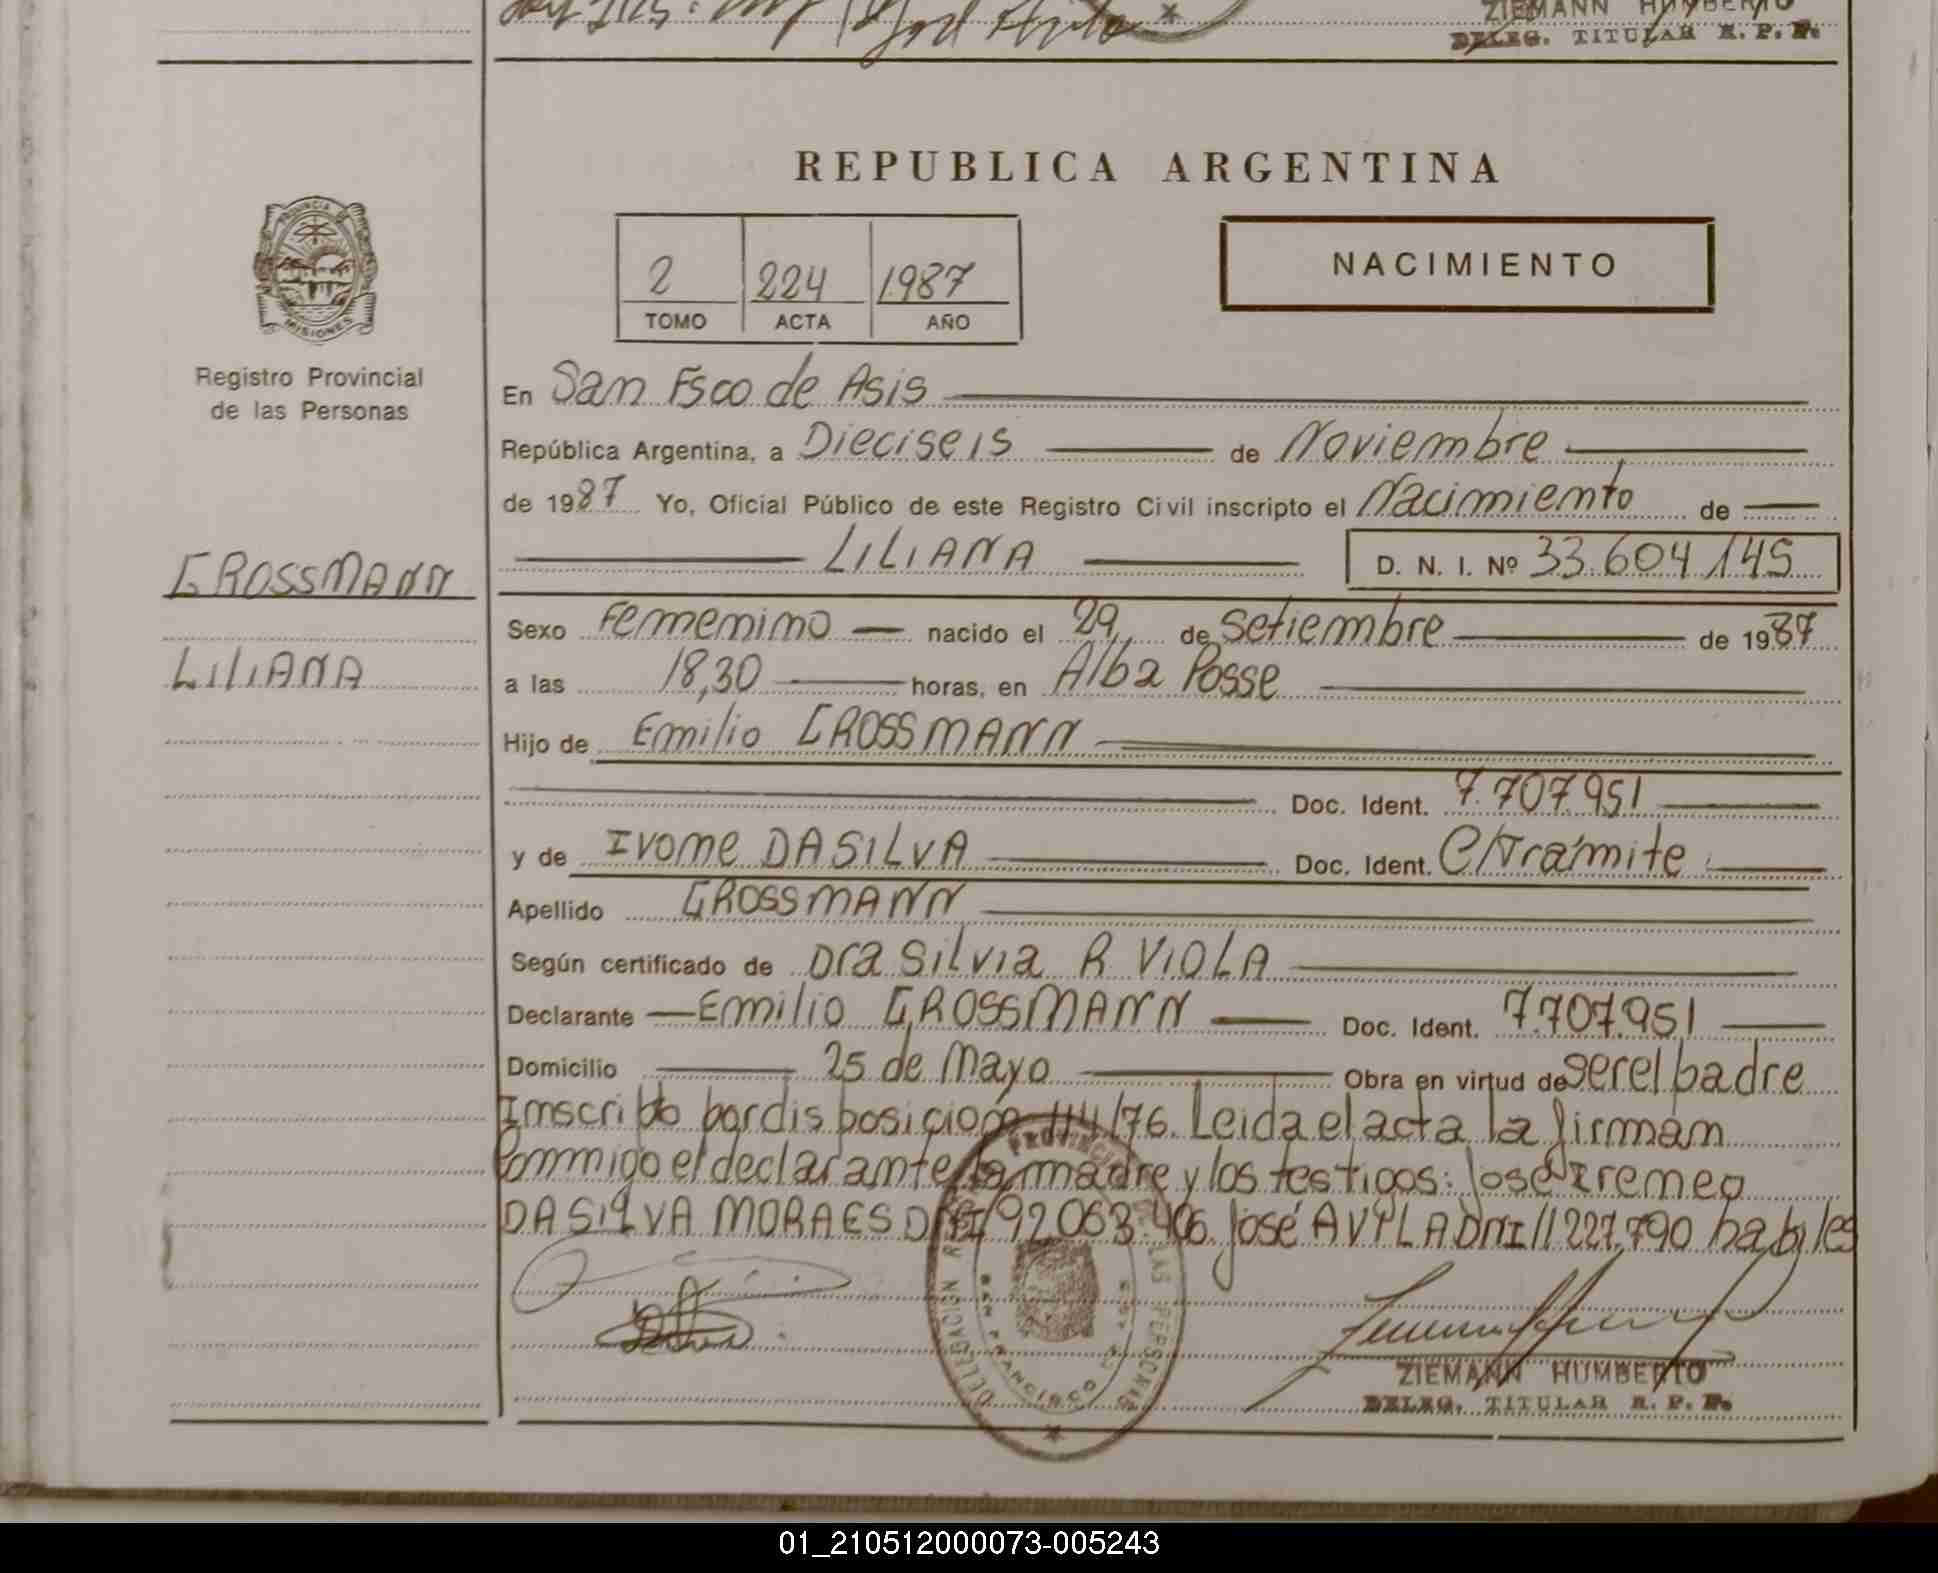 ZIEMANN HUMBERTO
DELEG. TITULAR R. P. P.
REPUBLICA ARGENTINA
PROVINCIA DE
MISIONES
2 224 1987
TOMO ACTA AÑO
NACIMIENTO
Registro Provincial
de las Personas
GROSSMANN
LILIANA
En San Fsco de Asis
República Argentina, a Dieciseis de Noviembre
de 1987 Yo, Oficial Público de este Registro Civil inscripto el Nacimiento de
LILIANA D. N. I. Nº 33.604.145
Sexo Femenino nacido el 29 de Setiembre de 1987
a las 18,30 horas, en Alba Posse
Hijo de Emilio GROSSMANN
Doc. Ident. 7.707.951
y de Ivone DA SILVA Doc. Ident. C/Trámite
Apellido GROSSMANN
Según certificado de Dra Silvia R VIOLA
Declarante Emilio GROSSMANN Doc. Ident. 7.707.951
Domicilio 25 de Mayo Obra en virtud de ser el padre
Inscripto por disposición /76. Leida el acta la firman
Conmigo el declarante, la madre y los testigos: José Ireneo
DA SILVA MORAES DNI 92.063.406. José AVILA DNI 11227,790 habiles
DELEGACION LAS PERSONAS
SAN FRANCISCO
ZIEMANN HUMBERTO
DELEG. TITULAR R. P. P.
01_210512000073-005243